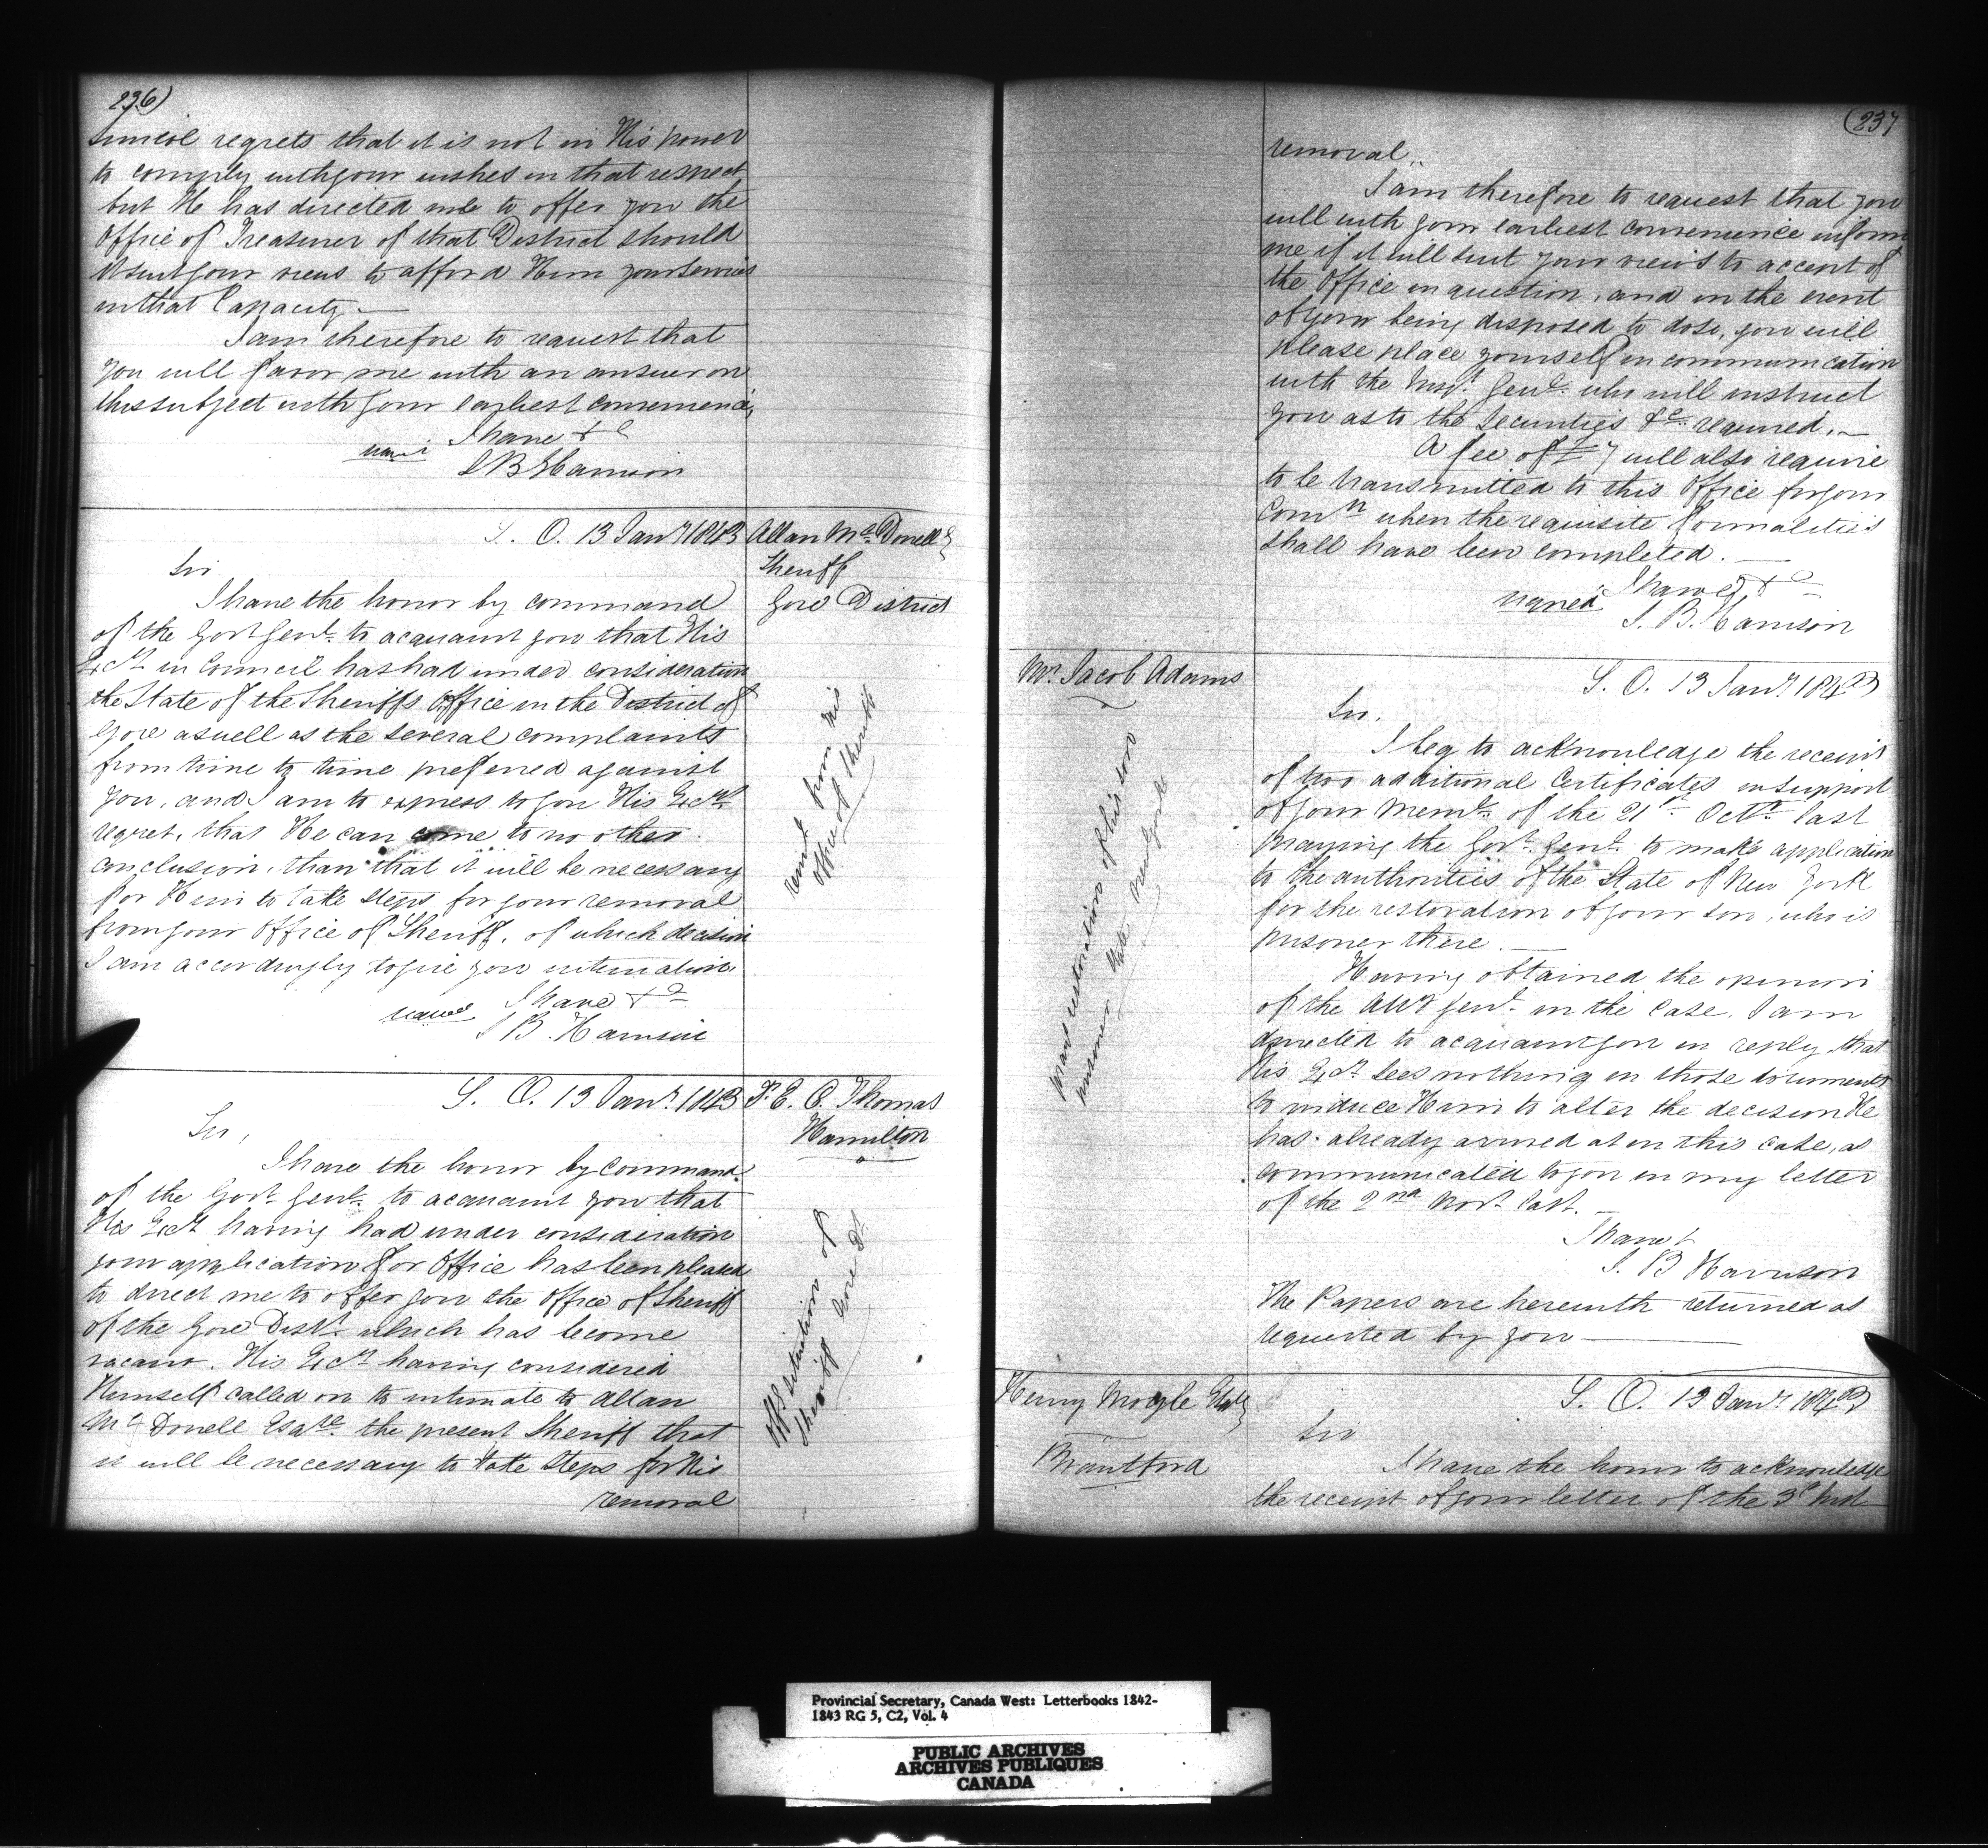 236)
Simcoe regrets that it is not in His power
to comply with your wishes in that respect
but He has directed me to offer you the
Office of Treasurer of that District should
it suit your views to afford Him your services
in that Capacity.—
I am therefore to request that
you will favor me with an answer on
this subject with your earliest convenience,
I have &c
signed
S B Harrison
S. O. 13 Jany 1843
Allan McDonell E
Sheriff
Gore District
Sir
I have the honor by command
of the Govr Genl. to acquaint you that His
Excy in Council has had under consideration
the State of the Sheriffs Office in the District of
Gore as well as the several complaints
from time to time preferred against
you, and I am to express to you His Excys
regret, that He can come to no other
conclusion, than that it will be necessary
for Him to take steps for your removal
from your Office of Sheriff, of which decision
I am accordingly to give you intimation.
I have &c
signed
S B. Harrison
from his
Office of Sheriff
S. O. 13 Jany. 1843
E. C. Thomas
Hamilton
Sir,
I have the honor by command
of the Govr. Genl. to acquaint you that
His Excy having had under consideration
your application for Office has been pleased
to direct me to offer you the Office of Sheriff
of the Gore Distt. which has become
vacant. His Excy having considered
Himself called on to intimate to Allan
McDonell Esqre. the present Sheriff that
it will be necessary to take steps for His
removal
Offg situation of
Sheriff Gore Dt.
(237
removal..
I am therefore to request that you
will with your earliest convenience inform
me if it will suit your views to accept of
the Office in question, and in the event
of your being disposed to do so, you will
please place yourself in communication
with the Inspr. Genl. who will instruct
you as to the Securities &c. required.—
A fee of £7 will also require
to be transmitted to this Office for your
Comn when the requisite formalities
shall have been completed.—
I have &c
signed
S. B. Harrison
Mr. Jacob Adams
S. O. 13 Jany 1843
Sir,
I beg to acknowledge the receipt
of two additional Certificates in support
of your Meml. of the 21st. Octr. last
praying the Govr. Genl. to make application
to the authorities of the State of New York
for the restoration of your son, who is
prisoner there.—
Having obtained the opinion
of the Atty Genl. in the case, I am
directed to acquaint you in reply, that
His Excy. sees nothing in those documents
to induce Him to alter the decision He
has already arrived at in this case, as
communicated to you in my letter
of the 2nd Novr. last.—
I have &
S. B Harrison
The Papers are herewith returned as
requested by you —
restoration of his son
prisoner State New York
Henry Moyle
Brantford
S. O. 13 Jany 1843
Sir
I have the honor to acknowledge
the receipt of your letter of the 3d Inst
Provincial Secretary, Canada West: Letterbooks 1842-
1843 RG 5, C2, Vol. 4
PUBLIC ARCHIVES
ARCHIVES PUBLIQUES
CANADA